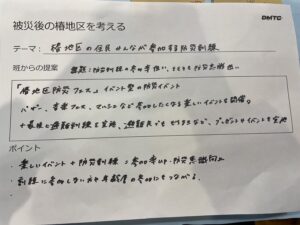 被災後の椿地区を考える
DMTC
テーマ: 椿地区の住民みんなが参加する防災訓練
班からの提案 課題:防災訓練の参加率低い、そもそも防災意識低い
「椿地区防災フェス」イベント型の防災イベント
バザー、音楽フェス、マルシェなど参加したくなる楽しいイベントを開催。
+最後に避難訓練を実施、避難先でもセリするなど、プレゼントやイベントを実施
ポイント
・楽しいイベント+防災訓練=参加率up・防災意識向上
・訓練に参加しない方や年齢層の参加にもつながる。